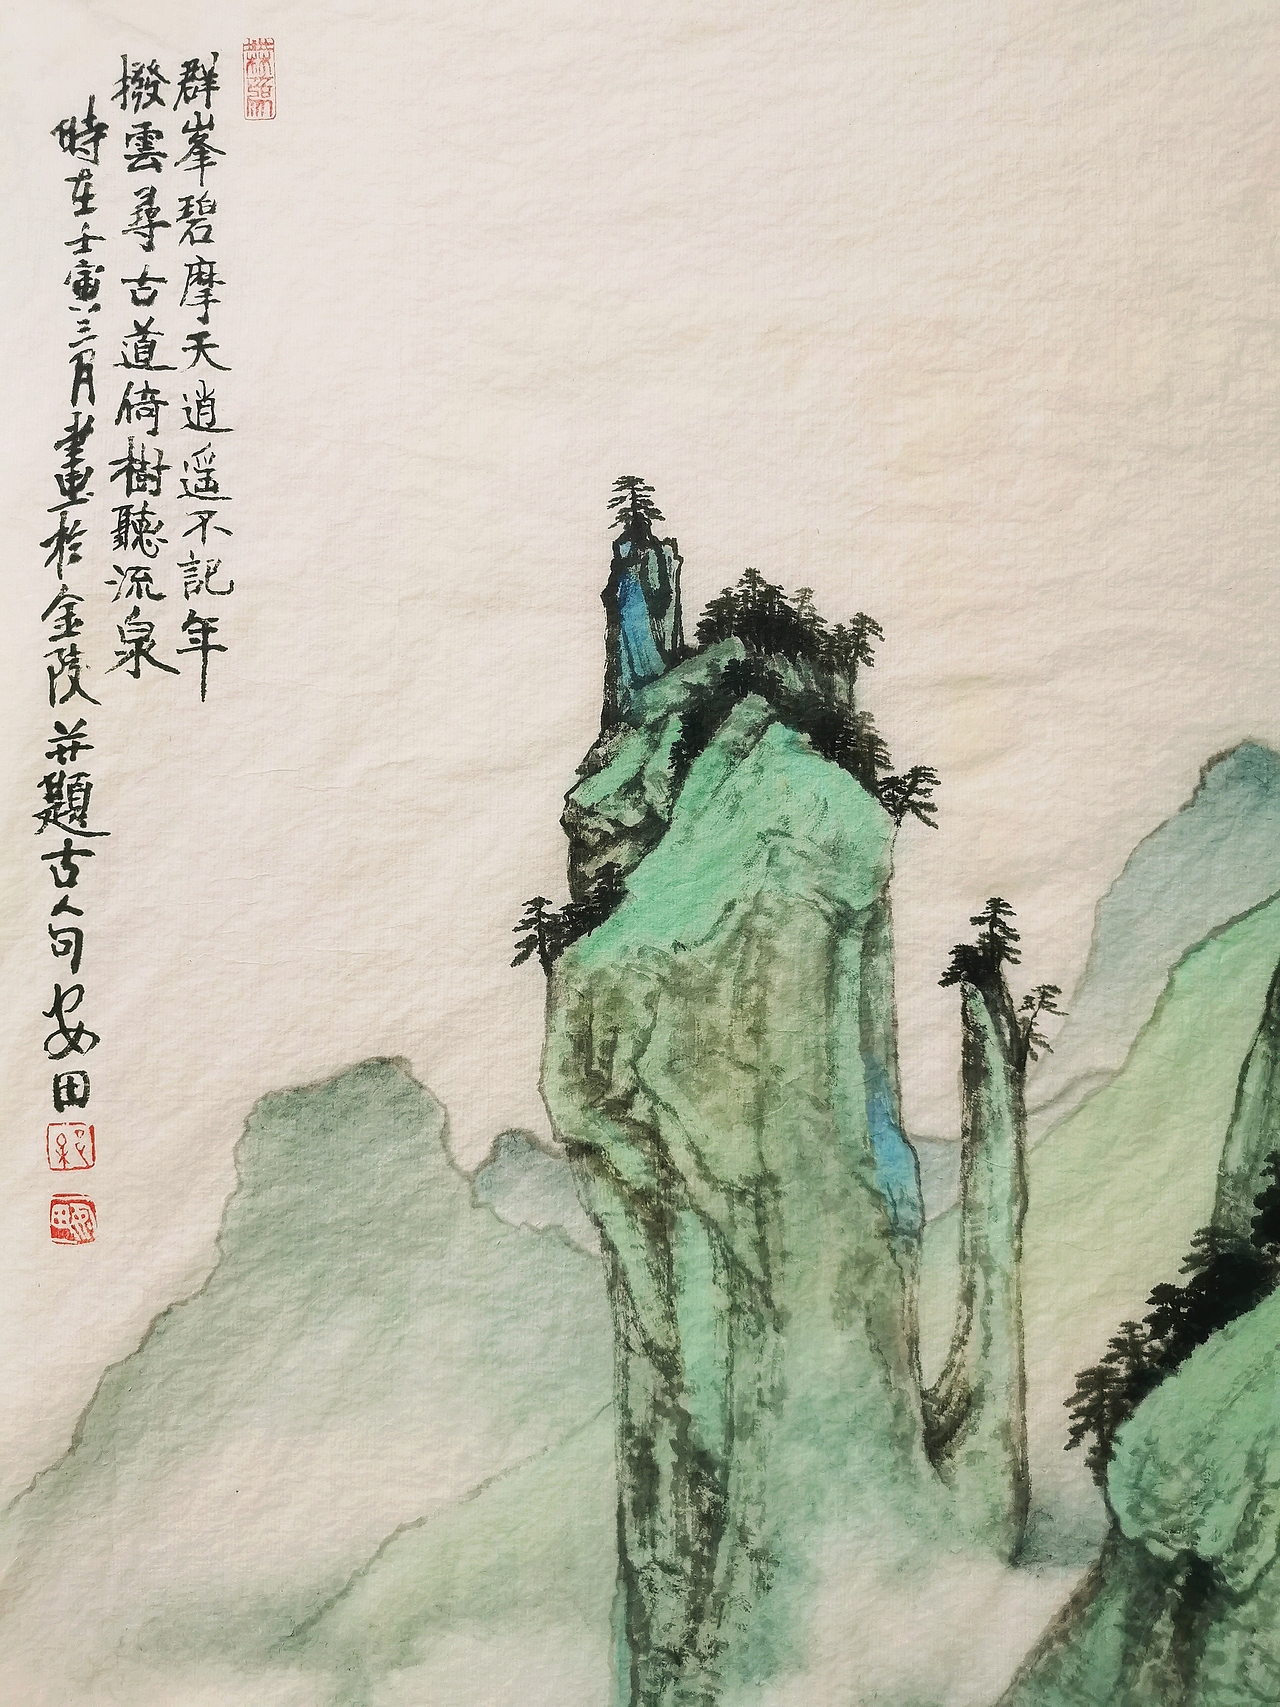 群峯碧摩天逍遥不記年
撥雲尋古道倚樹聽流泉
時在壬寅三月畫於金陵並題古人句安田